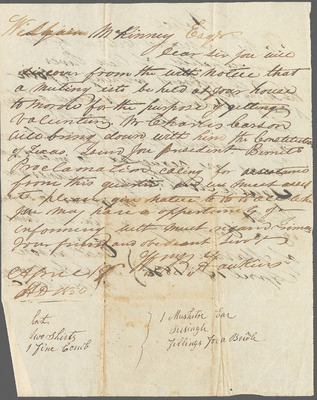 William McKinney Esqr
Dear Sir you will
discover from the with Notice that
a meeting is to be held at your house
to Morrow for the purpose of getting
Volunteers Mr Charles Carson
will bring down with him the Constitution
of Texas. I send you president Burnets
Proclamation caling for
from this quarter
to please give Notice to
you may have a oppertunity of
informing with must regard I remain
Your friend and obedient Servt
Hawkins
April 18th
AD 1836
two Shirts
1 Fine Comb
1 Musketoe Bar
Fillings for a Bridle